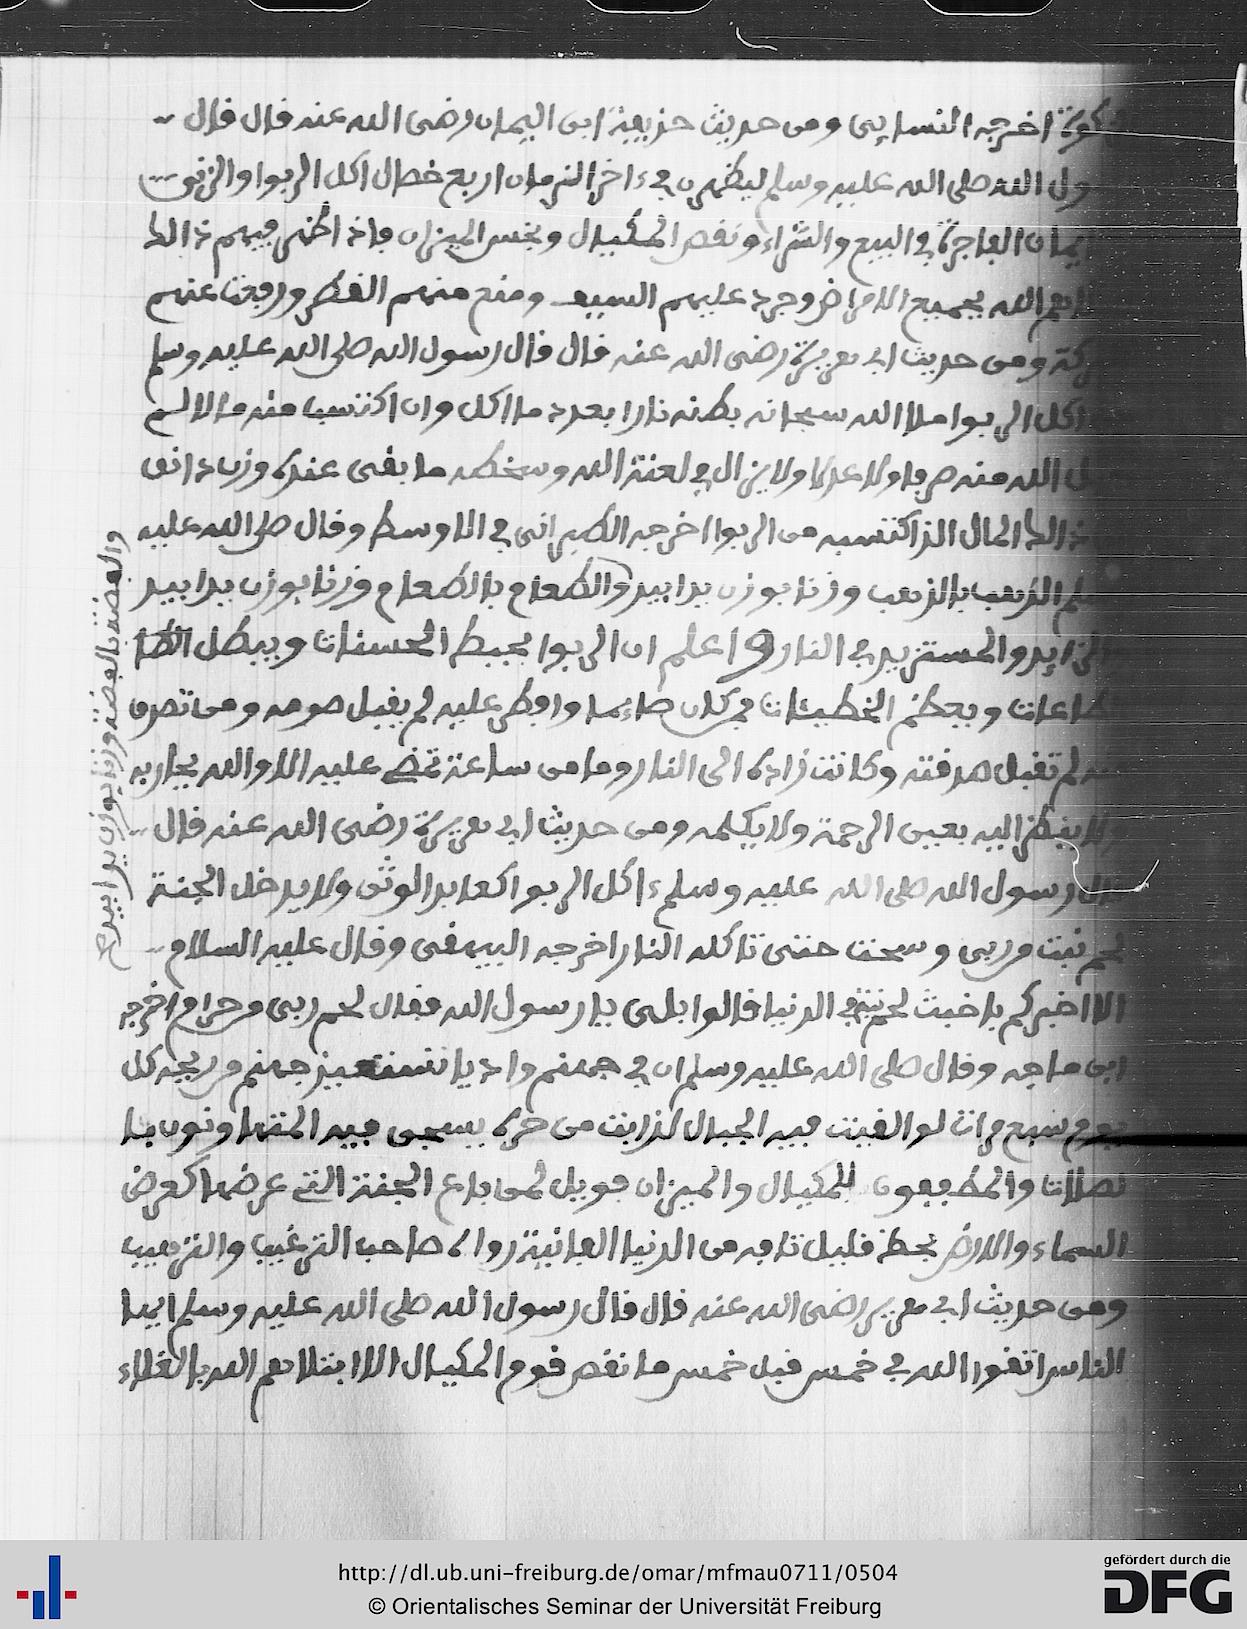 اخرجه النسايى ومن حديث حذيفة ابن اليمان رضى الله عنه قال قال
الله صلى الله عليه وسلم ليظهرن في ءاخر الزمان اربع خصال اكل الربوا والزنى
الفاجرة في البيع والشراء ونقص المكيال وبخس الميزان فاذا ظهر فيهم ذالك
الله بجميع الامراض وجرد عليهم السيف ومنع منهم القطر ورفعت عنهم
ومن حديث ابى هريرة رضى الله عنه قال قال رسول الله صلى الله عليه وسلم
اكل الربوا ملا الله سبحانه بطنه نارا بعدد ما اكل وان اكتسب منه مالا لم
الله منه صرفا ولا عدلا ولا يزال في لعنة الله وسخطه ما بقى عنده
ذالك المال الذ اكتسبه من الربوا اخرجه الطبرانى في الاوسط وقال صلى الله عليه
الذهب بالذهب وزنا بوزن يدا بيد والطعام بالطعام وزنا بوزن يدا بيد
والمستزيد في النار واعلم ان الربوا يحبط الحسنات ويبطل الطا
الطاعات ويعظم الخطيئات فمن كان صايما وافطر عليه لم يقبل صومه ومن تصدق
لم تقبل صدقته وكانت زاده الى النار وما من ساعة تمضى عليه الا والله يحاربه
ولا ينظر اليه بعين الرحمة ولا يكلمه ومن حديث ابى هريرة رضى الله عنه قال
رسول الله صلى الله عليه وسلم ءاكل الربوا كعابد الوثن ولا يدخل الجنة
لحم نبت من ربى وسحت حتى تاكله النار اخرجه البيهقى وقال عليه السلام
الا اخبركم باخبث لحم نبت في الدنيا قالوا بلى يا رسول الله فقال لحم ربى من حرام اخرجه
ابن ماجه وقال صلى الله عليه وسلم ان في جهنم واديا تستعيذ جهنم من ريحه كل
يوم سبع مرات لو القيت فيه الجبال لذابت من حره يسجن فيه المتهاونون با
لصلات والمطففون للمكيال والميزان فويل لمن باع الجنة التى عرضها كعرض
السماء والارض بحظ قليل تافه من الدنيا الفانية رواه صاحب الترغيب والترهيب
ومن حديث ابى هرير رضى الله عنه قال قال رسول الله صلى الله عليه وسلم ايها
الناس اتقوا الله في خمس قبل خمس ما نقص قوم المكيال الا ابتلاهم الله بالغلاء
والفضة بالفضة وزنا بوزن يدا بيد صح
http://dl.ub.uni-freiburg.de/omar/mfmau0711/0504
© Orientalisches Seminar der Universität Freiburg
gefördert durch die
DFG